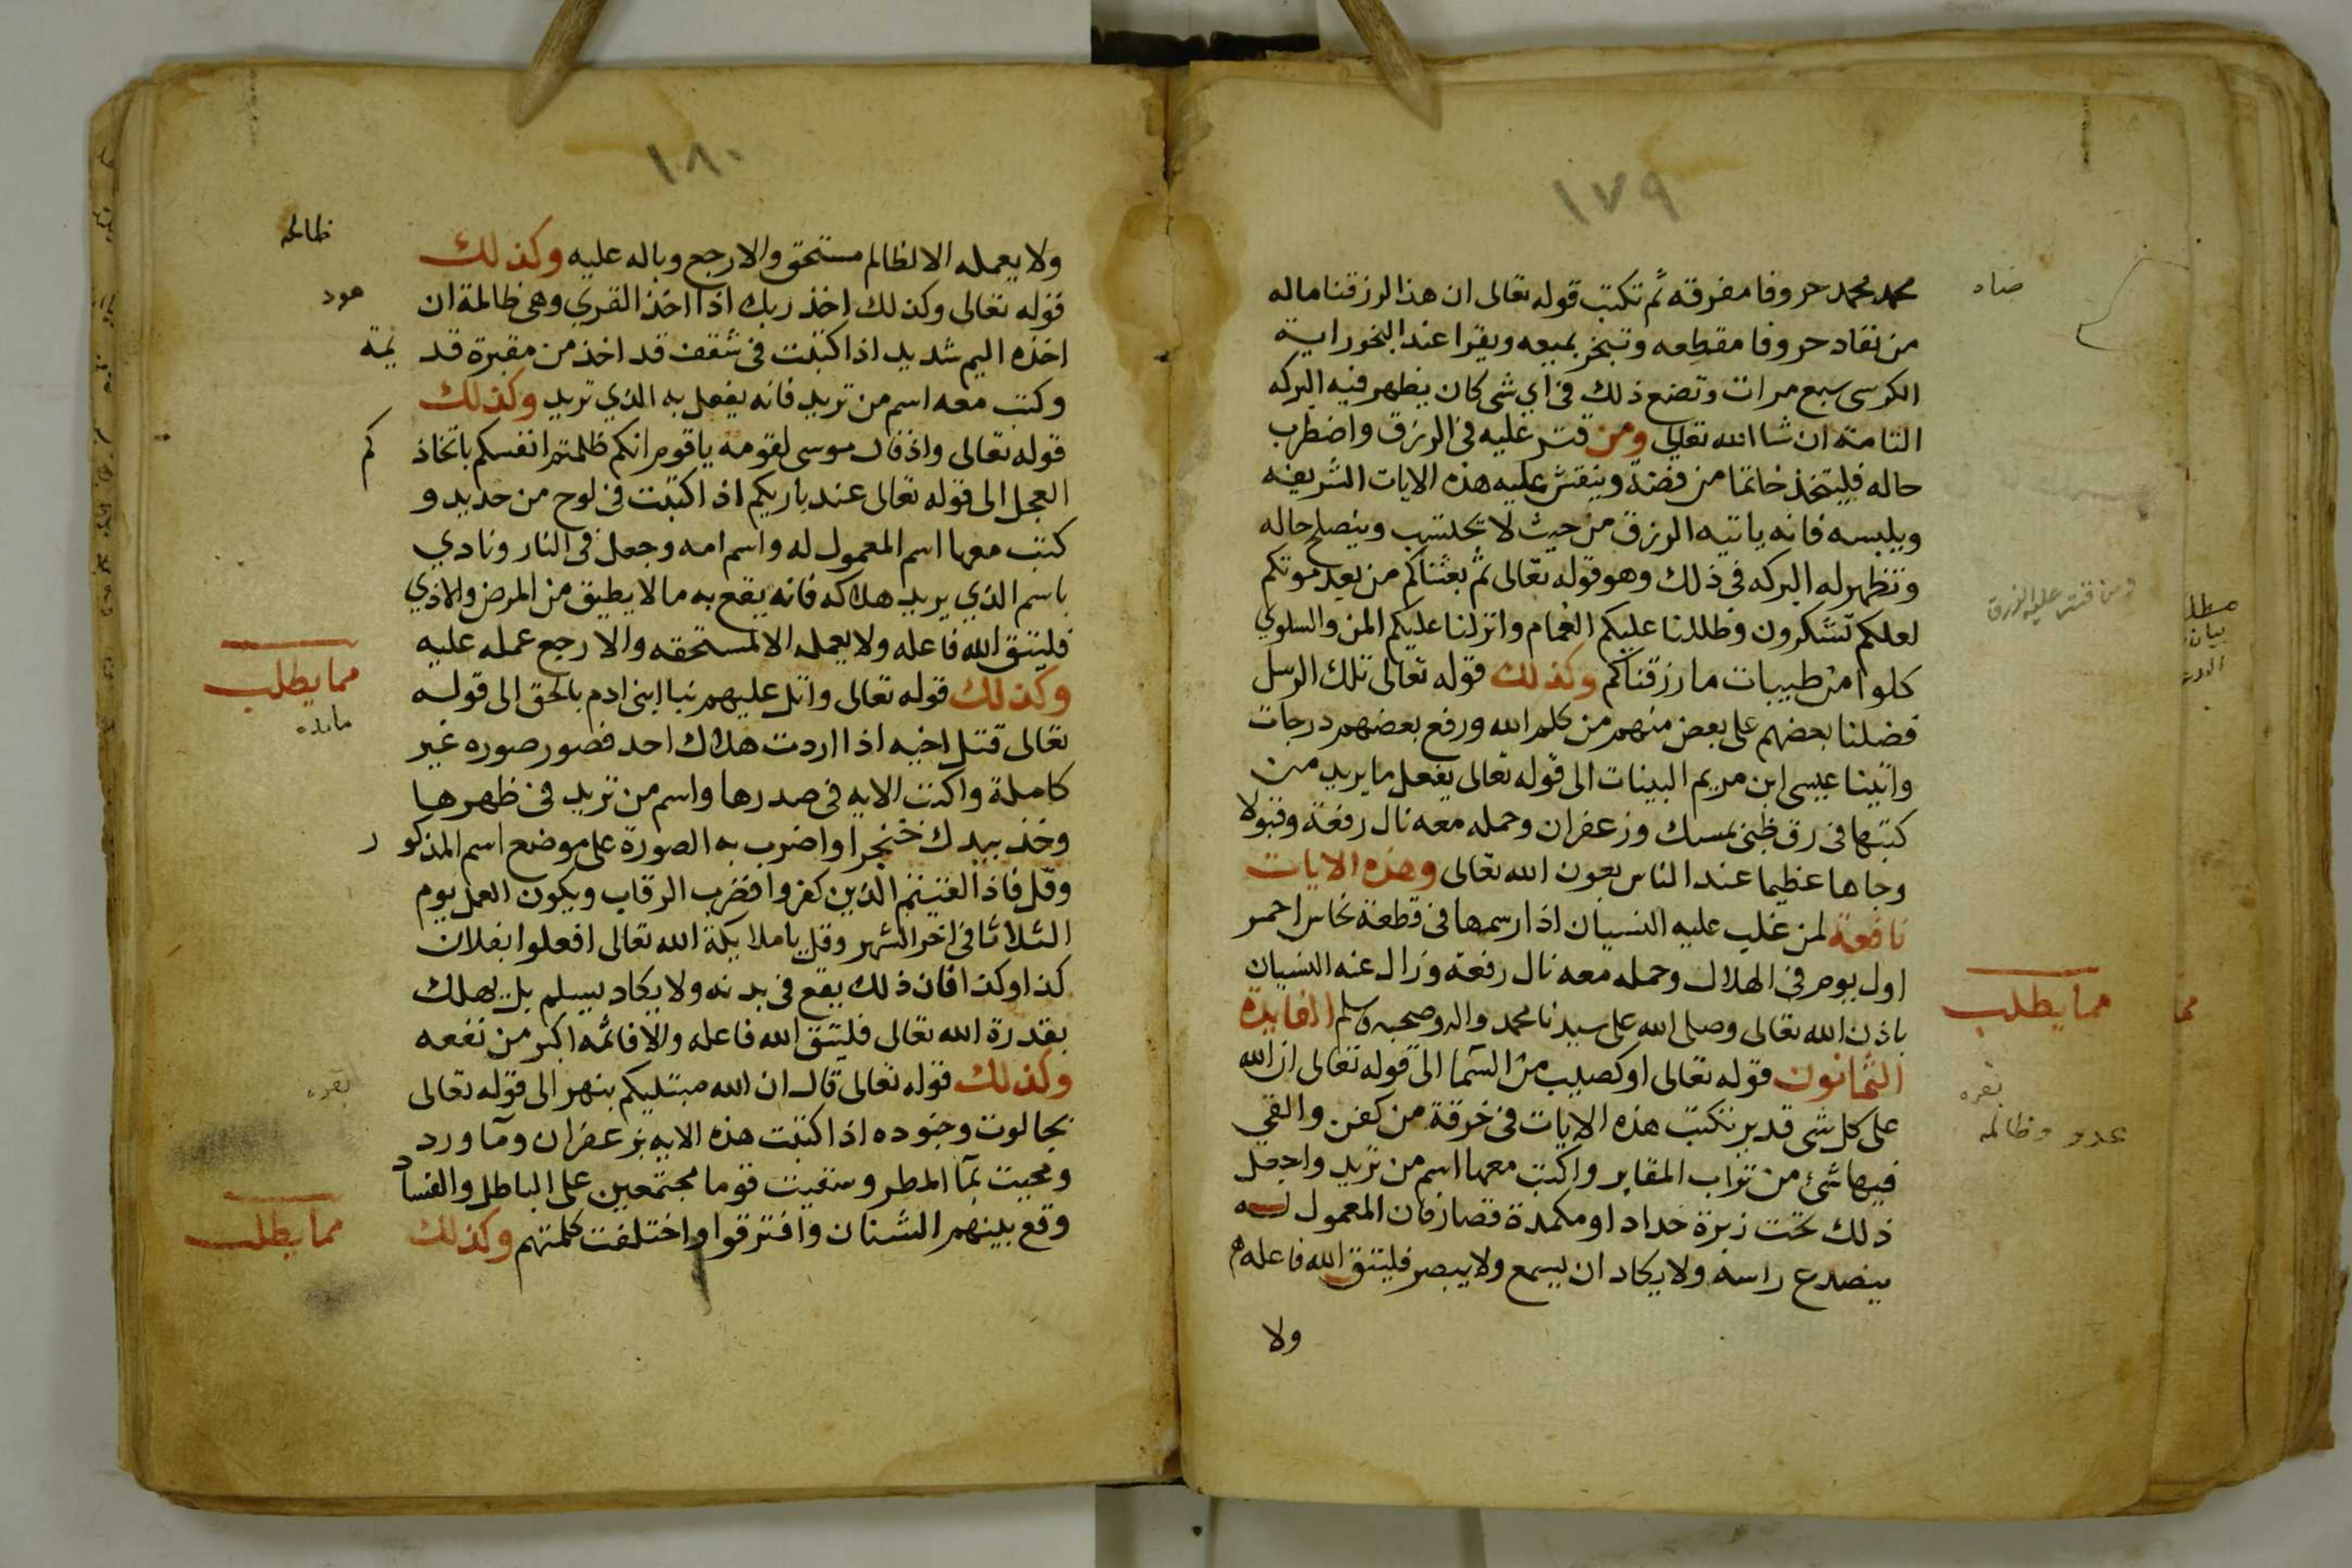 ١٧٩
محمد محمد حروفا مفرقه ثم تكتب قوله تعالى ان هذا لرزقنا ماله
صاد
من نفاد حروفا مقطعه وتبخر بميعه ويقرا عند البخور اية
الكرسى سبع مرات وتضع ذلك فى اي شى كان يظهر فيه البركه
التامة ان شا الله تعالى ومن قتر عليه فى الرزق واضطرب
حاله فليتخذ خاتما من فضة وينقش عليه هذه الايات الشريفه
ويلبسه فانه ياتيه الرزق من حيث لا يحتسب وينصلح حاله
وتظهر له البركه فى ذلك وهو قوله تعالى ثم بعثناكم من بعد موتكم
ومن قتر عليه الرزق
لعلكم تشكرون وظللنا عليكم الغمام وانزلنا عليكم المن والسلوي
كلوا من طيبات ما رزقناكم وكذلك قوله تعالى تلك الرسل
فضلنا بعضهم على بعض منهم من كلم الله ورفع بعضهم درجات
واتينا عيسى ابن مريم البينات الى قوله تعالى يفعل ما يريد من
كتبها فى رق ظبى بمسك وزعفران وحمله معه نال رفعة وقبولا
وجاها عظيما عند الناس بعون الله تعالى وهذه الايات
نافعة لمن غلب عليه النسيان اذا رسمها فى قطعة نحاس احمر
اول يوم فى الهلال وحمله معه نال رفعة وزال عنه النسيان
باذن الله تعالى وصلى الله على سيدنا محمد واله وصحبه وسلم الفايدة
مما يطلب
الثمانون قوله تعالى او كصيب من السما الى قوله تعالى ان الله
بقره
على كل شى قدير تكتب هذه الايات فى خرقة من كفن والقي
عدو وظالمه
فيها شئ من تراب المقابر واكتب معها اسم من تريد واجعل
ذلك تحت زبرة حداد او مكمدة قصار فان المعمول له
ينصدع راسه ولا يكاد ان يسمع ولا يبصر فليتق الله فاعله
ولا
١٨٠
ولا يعمله الا لظالم مستحق والا رجع وباله عليه وكذلك
ظالمه
قوله تعالى وكذلك اخذ ربك اذا اخذ القري وهى ظالمة ان
هود
اخذه اليم شديد اذا كتبت فى شقف قد اخذ من مقبرة قد يمة
وكتب معه اسم من تريد فانه يفعل به الذي تريد وكذلك
قوله تعالى واذ قال موسى لقومه ياقوم انكم ظلمتم انفسكم باتخاذ كم
العجل الى قوله تعالى عند باريكم اذا كتبت فى لوح من حديد و
كتب معها اسم المعمول له واسم امه وجعل فى النار ونادي
باسم الذي يريد هلاكه فانه يقع به ما لا يطيق من المرض والاذي
فليتق الله فاعله ولا يعمله الا لمستحقه والا رجع عمله عليه
وكذلك قوله تعالى واتل عليهم نبا ابنى ادم بالحق الى قوله
مما يطلب
مايده
تعالى قتل اخيه اذا اردت هلاك احد فصور صوره غير
كاملة واكتب الايه فى صدرها واسم من تريد فى ظهرها
وخذ بيدك خنجرا واضرب به الصورة على موضع اسم المذكو ر
وقل فاذا لقيتم الذين كفروا فضرب الرقاب ويكون العمل يوم
الثلاثا فى اخر الشهر وقل يا ملايكة الله تعالى افعلوا بفلان
كذا وكذا فان ذلك يقع فى بدنه ولا يكاد يسلم بل يهلك
بقدرة الله تعالى فليتق الله فاعله والا فاثمه اكبر من نفعه
وكذلك قوله تعالى قال ان الله مبتليكم بنهر الى قوله تعالى
بقره
بجالوت وجنوده اذا كتبت هذه الايه بزعفران وما ورد
ومحيت بما المطر وسقيت قوما مجتمعين على الباطل والفساد
وقع بينهم الشنان وافترقوا واختلفت كلمتهم وكذلك
مما يطلب